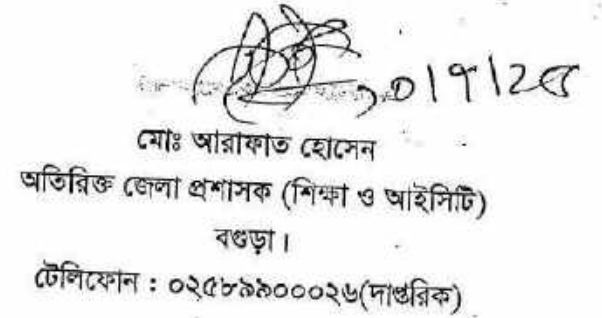 মোঃ আরাফাত হোসেন
অতিরিক্ত জেলা প্রশাসক (শিক্ষা ও আইসিটি)
বগুড়া।
টেলিফোন : ০২৫৮৯৯০০০২৬(দাপ্তরিক)